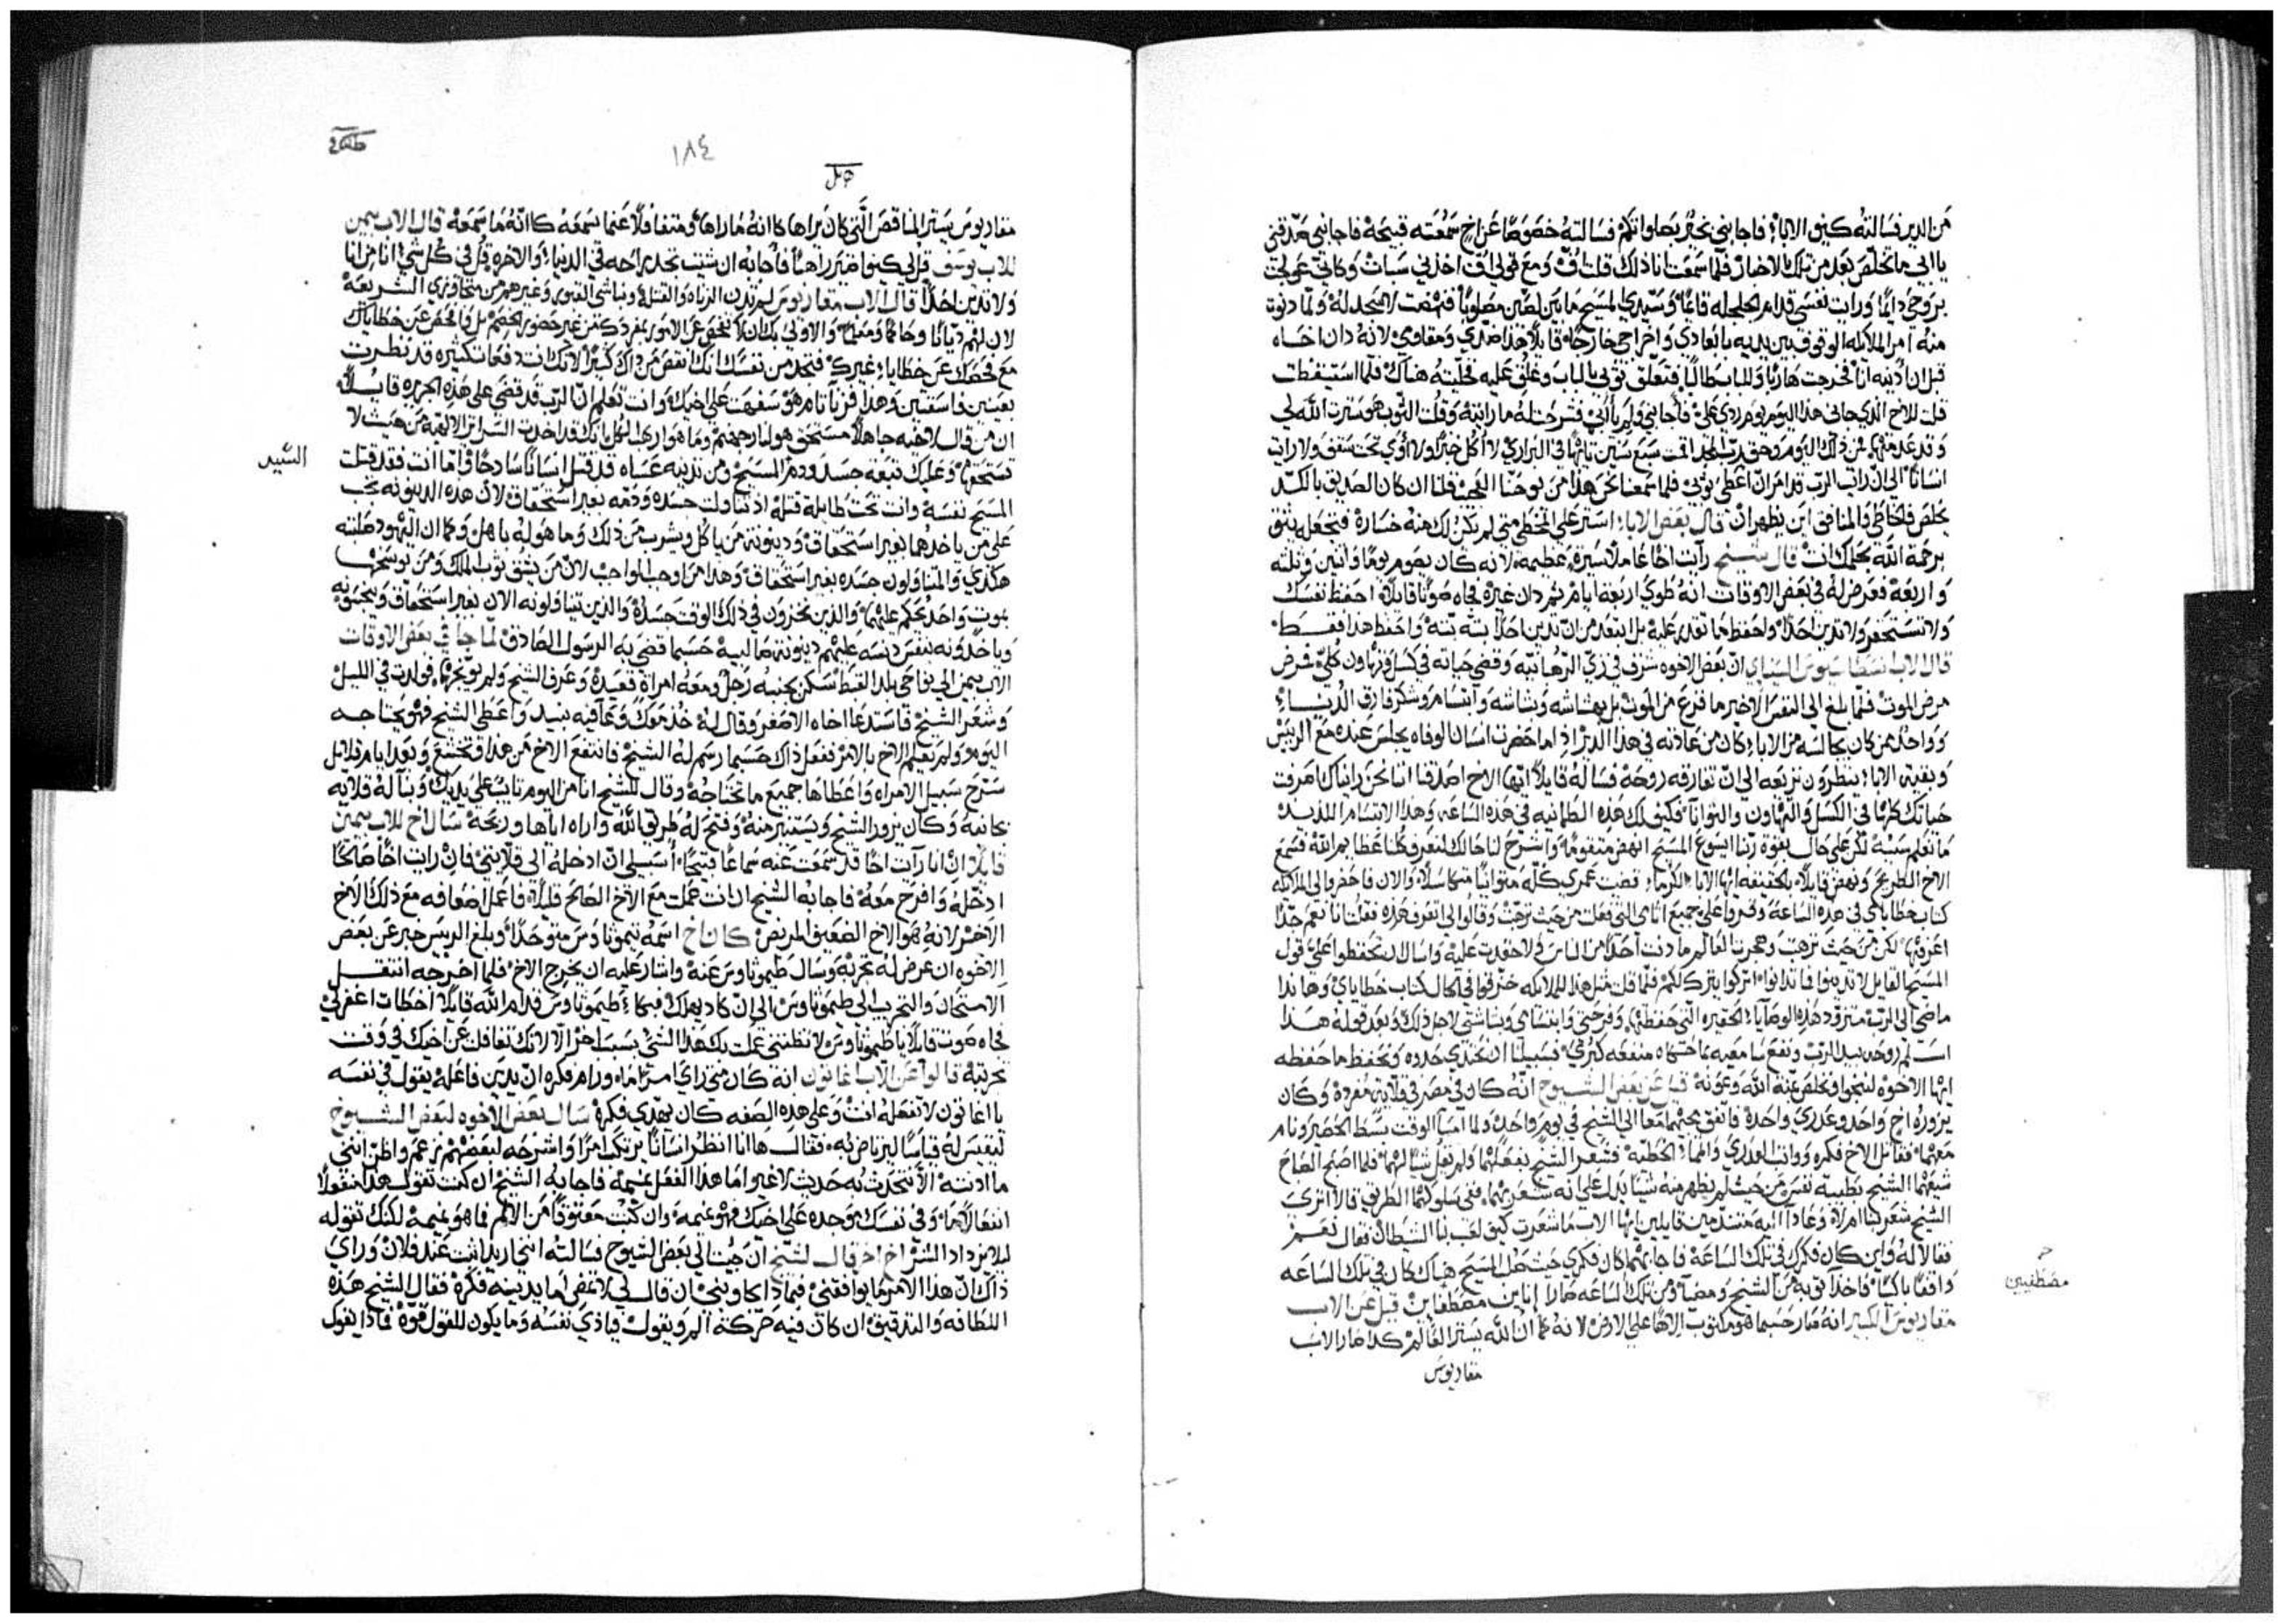 من الدير فسالته كيف الابا؛ فاجابني بخير بصلواتكم فسالته خصوصًا عن اخ سمعته قبيحة فاجابني صدقني
يا ابي ما تخلص بعد من تلك الاخبار فلما سمعت انا ذلك قلت اف ومع قولي اف اخذني سبات وكاني
بروحي ورايت نفسي قدام الجلجله قايمًا وسيدي المسيح ما بين لصين مصلوبًا فنهضت لاسجد له ولما دنوت
منه امر الملايكه الوقوف بين يديه بابعادي واخراجي خارجًا قايلًا لانه دان اخاه
قبل ان ادينه انا فخرجت هاربًا فتعلق ثوبي بالباب وغلق عليه فخليته هناك فلما استيقظت
قلت للاخ الذي جاني هذا اليوم يوم ردي علي فاجابني ولم يا ابي فشرحت له ما رايته وقلت الثوب هو سترت الله لي
وقد عدمتها فمن ذلك اليوم وحق رب المجد اقمت سبع سنين تايهًا في البراري لا اكل خبزًا ولا اوي تحت سقف ولا رايت
انسانًا الى ان رايت الرب قد امر ان اعطى ثوبي فلما سمعنا نحن هذا من يوحنا قلنا ان كان الصديق بالكد
يخلص فالخاطي والمنافق اين يظهران قال بعض الابا؛ استر على المخطي متى لم يكن لك منه خسارة فتجعله يثق
برحمة الله تحملك انت قال شيخ رايت اخًا عاملًا سيرة عظيمه لانه كان يصوم يومًا واثنين وثلثه
واربعة فعرض له في بعض الاوقات انه طوى اربعة ايام ثم دان غيره فجاه صوتًا قايلًا احفظ نفسك
ولا تستحقر ولا تدين احدًا واحفظ ما تقدر عليه بل ابتعد من ان تدين احدًا بته بته واحفظ هذا فقط
قال الاب انسطاسيوس السيناي ان بعض الاخوه شرف في زي الرهبانيه وقضى حياته في كسل وتهاون كلي مرض
مرض الموت فلما بلغ الى النفس الاخير ما فزع من الموت بل بهشاشه وبشاشه وابتسام وشكر فارق الدنيا؛
وواحد ممن كان يجالسه من الابا؛ كان من عادته في هذا الدير اذا ما حضرت انسان الوفاه يجلس عنده مع الرييس
وبقية الابا؛ ينظرون نزيعه الى ان تفارقه روحه فساله قايلًا ايها الاخ اصدقنا اننا نحن رايناك صرفت
حياتك كلها في الكسل والتهاون والتوانا فكيف لك هذه الطمانيه في هذه الساعه وهذا الابتسام اللذيذ
ما نعلم سببه لكن على حال بقوة ربنا ايسوع المسيح انهض متقومًا واشرح لنا حالك لنعرف كلنا عظايم الله فسمع
الاخ الطريح ونهض قايلًا بالحقيقه ايها الابا؛ الكرما؛ قضيت عمري كله متوانيًا متكاسلًا والان فاحضروا لي الملايكه
كتاب خطاياي في هذه الساعة وقروا علي جميع اثامي التي فعلت من حيث ترهبت وقالوا لي اتعرف هذه فقلت انا نعم جدًا
اعرفها لكن من حيث ترهبت وهجرت العالم ما دنت احدًا من الناس ولا حقدت عليه واسال ان تحفظوا علي قول
المسيح القايل لا تدينوا فما تدانوا اتركوا يترك لكم فلما قلت مثل هذا للملايكه خرقوا في الحال كتاب خطاياي وها انذا
ماضي الى الرب متزود هذه الوصايا؛ الحقيره التي حفظتها وفرحتي وابتسامي وبشاشتي لاجل ذلك وبعد قوله هذا
اسلم روحه بيد الرب ونفع سامعيه بما حكاه منفعه كبرى فسبيلنا ان نحتدي حدوه ونحفظ ما حفظه
ايها الاخوه لننجوا ونخلص بمنة الله وعونه قيل عن بعض الشيوخ انه كان في مصر في قلاية مفردة وكان
يزوره اخ واحد وعذري واحدة فاتفق مجيهما معًا الى الشيخ في يوم واحد ولما امسا الوقت بسط الحصير ونام
معهما فقاتل الاخ فكره وواثب العذري واتما الخطيه فشعر الشيخ بفعلهما ولم يقل شيًا لهما فلما اصبح الصباح
شيعهما الشيخ بطيبة نفس من حيث لم يظهر منه شيًا يدل على انه شعر بهما ففي سلوكهما الطريق قالا اترى
الشيخ شعر بنا ام لا وعادا اليه متندمين قايلين ايها الاب ما شعرت كيف لعب بنا الشيطان فقال نعم
فقالا له واين كان فكرك في تلك الساعة فاجابهما كان فكري حيث صلب المسيح هناك كان في تلك الساعه
واقفًا باكيًا فاخذا توبه من الشيخ ومضيا ومن تلك الساعه صارا اناين مصطفاين قيل عن الاب
مصطفيين
مقاريوس الكبير انه صار حسبما هو مكتوب الاهًا على الارض لانه كما ان الله يستر العالم كذا صار الاب
مقاريوس
١٨٤
مقاريوس يستر المناقص التي كان يراها كانه ما راها ومتغافلًا عنما يسمعه كانه ما سمعه قال الاب بيمين
للاب يوسف قل لي كيف اصير راهبًا فاجابه ان شيت تجد راحه في الدنيا؛ والاخره قل في كل شي؛ انا من انا
ولا تدين احدًا قال الاب مقاريوس لم ندن الزناه والقتله ونباشي القبور وغيرهم من متجاوزي الشريعة
لان لهم ديانًا وحاكمًا والاولى بك ان لا تفحص عن الامور بمفردك من غير حضور الخصم بل وافحص عن خطاياك
مع فحصك عن خطايا؛ غيرك فتجد من نفسك انك انقص من ذاك كثيرًا لانك انت دفعات كثيره قد نظرت
بعينين فاسقتين وهذا فزنا تام هو سفهت على اخيك وانت تعلم ان الرب قد قضى على هذه الجريره قايلًا
ان من قال لاخيه جاهلًا مستحق هو لنار جهنم
تستحقها وعليك تبعة جسد ودم المسيح ومن تدينه عساه قد قتل انسانًا ساذجًا واما انت فقد قتلت
السيد
المسيح نفسه وانت تحت طايلة قتله اذ تناولت جسده ودمه بغير استحقاق لان هذه الدينونه تجب
على من ياخذهما بغير استحقاق ودينونة من ياكل ويشرب من ذلك وما هو له باهل وكما ان اليهود صلبته
هكذي والمتناولون جسده بغير استحقاق وهذا من اوجب الواجب لان من يشق ثوب الملك ومن يوسخها
بموت واحد يحكم عليهما والذين نخزون في ذلك الوقت جسده والذين يتناولونه الان بغير استحقاق وينجسونه
وياخذونه بنفس دنسه عليهم دينونة صالبيه حسبما قضى به الرسول الصادق لما جا في بعض الاوقات
الاب بيمين الى نواحي بلد القبط سكن بجنبه رجل ومعه امراة قعيدة وعرف الشيخ ولم يوبخهما فولدت في الليل
وشعر الشيخ فاستدعا اخاه الاصغر وقال له خذ معك وعافيه نبيد واعطي الشيخ فهو يحتاجه
اليوم ولم يعلم الاخ بالامر ففعل ذاك حسبما رسم له الشيخ فانتفع الاخ من هذا وتخشع وبعد ايام قلايل
سرح سبيل الامراه واعطاها جميع ما تحتاجه وقال للشيخ انا من اليوم تايب على يديك وبنا له قلايه
بجانبه وكان يزور الشيخ ويستنير منه وفتح له طريق الله واراه اياها وربحه سال اخ للاب بيمين
قايلًا ان انا رايت اخًا قد سمعت عنه سماعًا قبيحًا أسبيلي ان ادخله الى قلايتي فان رايت اخًا صالحًا
ادخله وافرح معه فاجابه الشيخ ان انت عملت مع الاخ الصالح قليلًا فاعمل اضعافه مع ذلك الاخ
الاخر لانه هو الاخ الضعيف المريض كان اخ اسمه تيموثاوس متوحدًا وبلغ الرييس خبر عن بعض
الاخوه ان عرض له تجربة وسال طيموثاوس عنه واشار عليه ان يخرج الاخ فلما اخرجه انتقل
الامتحان والتجريب الى طيموثاوس الى ان كاد يهلك فبكا؛ طيموثاوس قدام الله قايلًا اخطات اغفر لي
فجاه صوت قايلًا يا طيموثاوس لا تظنني عملت بك هذا الشي؛ بسبب اخر الا لانك تغافلت عن اخيك في وقت
تجربته قالوا عن الاب اغاثون انه كان متى راى امرًا ما ورام فكره ان يدين فاعله يقول في نفسه
يا اغاثون لا تفعله انت وعلى هذه الصفه كان يهدي فكره سال بعض الاخوه لبعض الشيوخ
ليقيس له قياسًا ليرتاض به فقال ها انا انظر انسانًا يرتكب امرًا واشرحه لبعضهم نزعم واظن انني
ما ادنته الا نتحدث به حديث لا غير اما هذا الفعل نميمة فاجابه الشيخ ان كنت تقول هذا منفعلًا
انفعالًا ما وفي نفسك موجده على اخيك فهو نميمة وان كنت معتوقًا من الالم فما هو نميمة لكنك تقوله
ليلا يزداد الشر اخ اخر قال لشيخ ان جيت الى بعض الشيوخ فسالته انني اريد البث عند فلان وراى
ذاك ان هذا الامر ما يوافقني فماذا يجاوبني ان قال لي لا تمضي اما يدينه فكره فقال الشيخ هذه
اللطافه والتدقيق ان كان فيه حركة الم ويقول فياذي نفسه وما يكون للقول قوة فماذا يقول